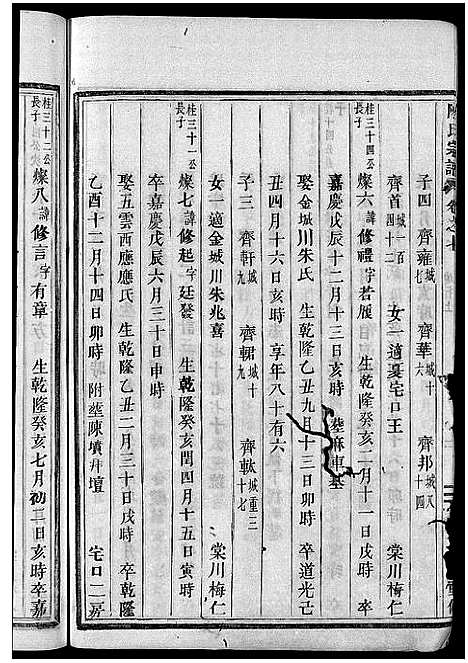 陳氏宗譜 卷之七
子四 齊雍城六 齊華城十六 齊邦城八十四
齊首城一百四 女一適憂宅口王 棠川梅仁
桂三十四公長子 燦六諱修禮字若履 生乾隆癸亥二月十一日亥時 卒
嘉慶戊辰十二月十三日亥時 塟麻車基
娶金城川朱氏 生乾隆乙丑九月十三日卯時 卒道光己
丑四月十六日亥時 享年八十有六
子三 齊軒城九 齊輑城十九 齊軚城重三十七
女一適金城川朱兆喜 棠川梅仁
桂三十一公長子 燦七諱修起字廷發 生乾隆癸亥閏四月十五日寅時
卒嘉慶戊辰六月三十日申時
娶五雲西應應氏 生乾隆乙丑二月三十日戌時 卒乾隆
乙酉十二月十四日卯時 附塟陳墳井壇 宅口二房
桂三十二公長子 燦八諱修言字有章 生乾隆癸亥七月初二日亥時卒嘉